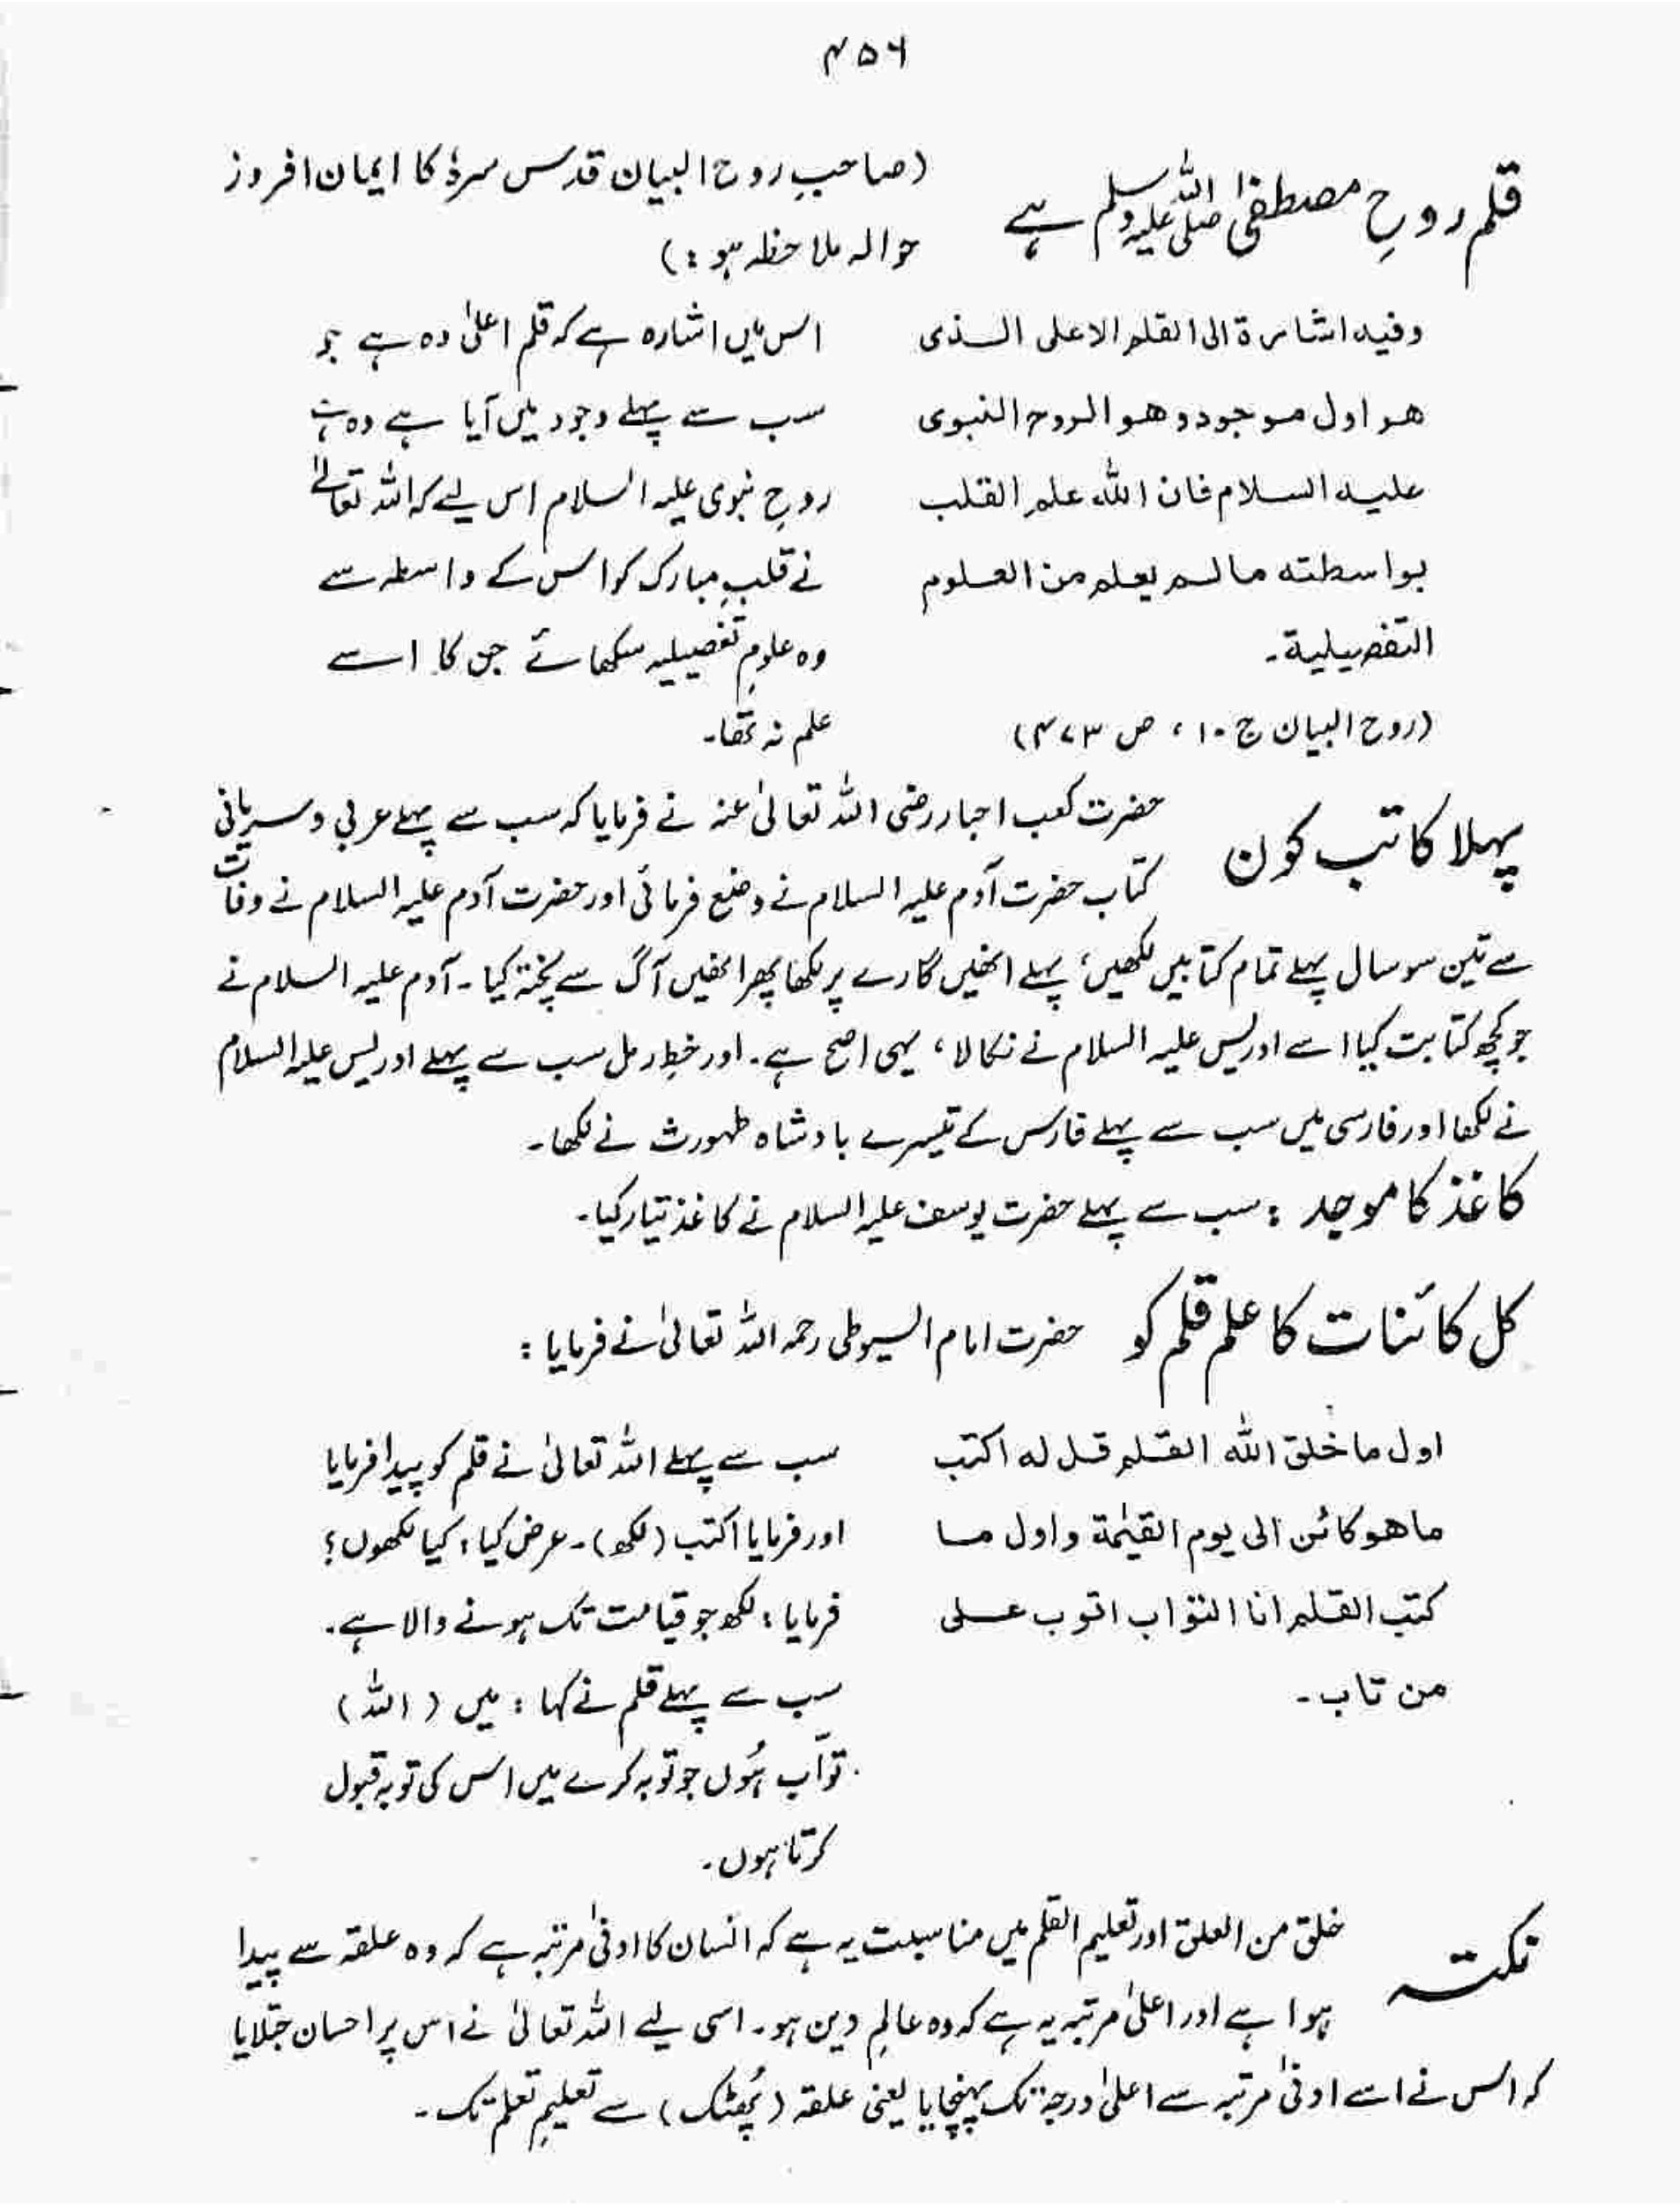 ۴۵۶
قلم روحِ مصطفیٰ صلی اللہ علیہ وسلم ہے
(صاحبِ روح البیان قدس سرہٗ کا ایمان افروز
حوالہ ملاحظہ ہو:)
وفیہ اشارۃ الی القلم الاعلی الذی
ھو اول موجود وھو الروح النبوی
علیہ السلام فان اللہ علم القلب
بواسطتہ مالم یعلم من العلوم
التفصیلیۃ۔
(روح البیان ج ۱۰، ص ۴۷۳)
اس میں اشارہ ہے کہ قلم اعلیٰ وہ ہے جو
سب سے پہلے وجود میں آیا ہے وہ ہے
روحِ نبوی علیہ السلام اس لیے کہ اللہ تعالےٰ
نے قلبِ مبارک کو اس کے واسطہ سے
وہ علومِ تفصیلیہ سکھائے جن کا اسے
علم نہ تھا۔
پہلا کاتب کون
حضرت کعب احبار رضی اللہ تعالیٰ عنہ نے فرمایا کہ سب سے پہلے عربی و سریانی
کتاب حضرت آدم علیہ السلام نے وضع فرمائی اور حضرت آدم علیہ السلام نے وفات
سے تین سو سال پہلے تمام کتابیں لکھیں، پہلے انھیں گارے پر لکھا پھر انھیں آگ سے پختہ کیا۔ آدم علیہ السلام نے
جو کچھ کتابت کیا اسے ادریس علیہ السلام نے نکالا، یہی اصح ہے۔ اور خطِ رمل سب سے پہلے ادریس علیہ السلام
نے لکھا اور فارسی میں سب سے پہلے فارس کے تیسرے بادشاہ طہورث نے لکھا۔
کاغذ کا موجد : سب سے پہلے حضرت یوسف علیہ السلام نے کاغذ تیار کیا۔
کل کائنات کا علم قلم کو حضرت امام السیوطی رحمہ اللہ تعالیٰ نے فرمایا :
اول ما خلق اللہ القلم قل لہ اکتب
ماھو کائن الی یوم القیٰمۃ واول ما
کتب القلم انا التواب اتوب علی
من تاب۔
سب سے پہلے اللہ تعالیٰ نے قلم کو پیدا فرمایا
اور فرمایا اکتب (لکھ)۔ عرض کیا، کیا لکھوں؟
فرمایا : لکھ جو قیامت تک ہونے والا ہے۔
سب سے پہلے قلم نے کہا : میں (اللہ)
توّاب ہُوں جو توبہ کرے میں اس کی توبہ قبول
کرتا ہوں۔
نکتہ
خلق من العلق اور تعلیم القلم میں مناسبت یہ ہے کہ انسان کا ادنیٰ مرتبہ ہے کہ وہ علقہ سے پیدا
ہوا ہے اور اعلیٰ مرتبہ یہ ہے کہ وہ عالمِ دین ہو۔ اسی لیے اللہ تعالیٰ نے اس پر احسان جتلایا
کہ اس نے اسے ادنیٰ مرتبہ سے اعلیٰ درجہ تک پہنچایا یعنی علقہ (پُھٹک) سے تعلیمِ تعلم تک۔